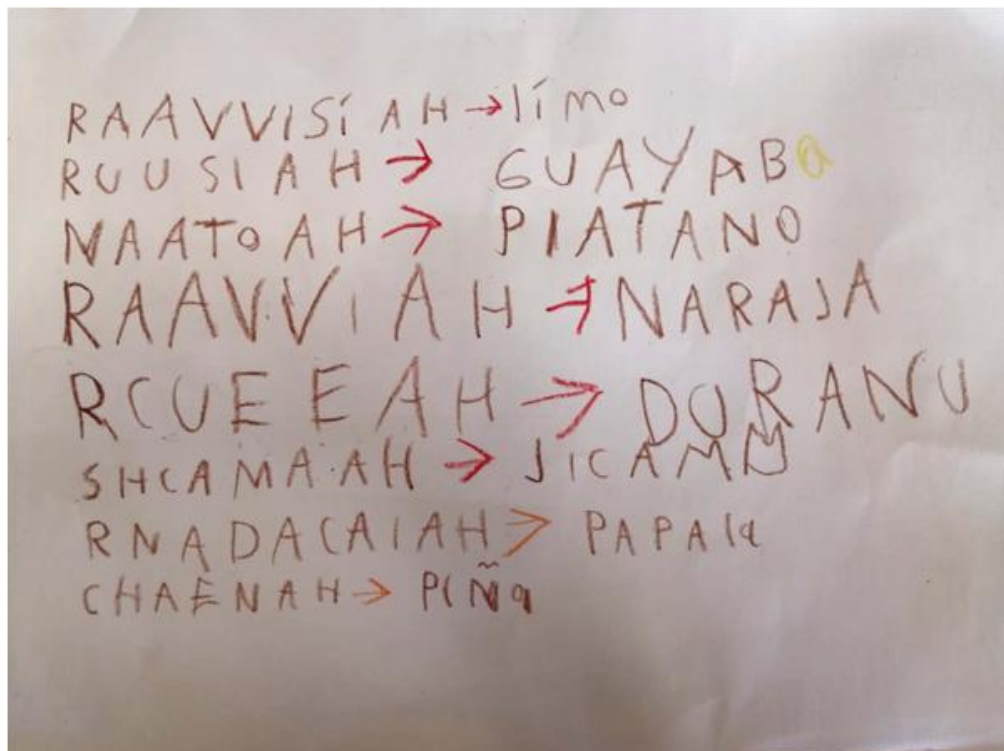 RAAVVISÍAH → límo
RUUSIAH → GUAYABa
NAATOAH → PIATANO
RAAVVIAH → NARAJA
RCUEEAH → DURANU
SHCAMA.AH → JICAMA
RNADACAIAH → PAPAIa
CHAENAH → PIÑa